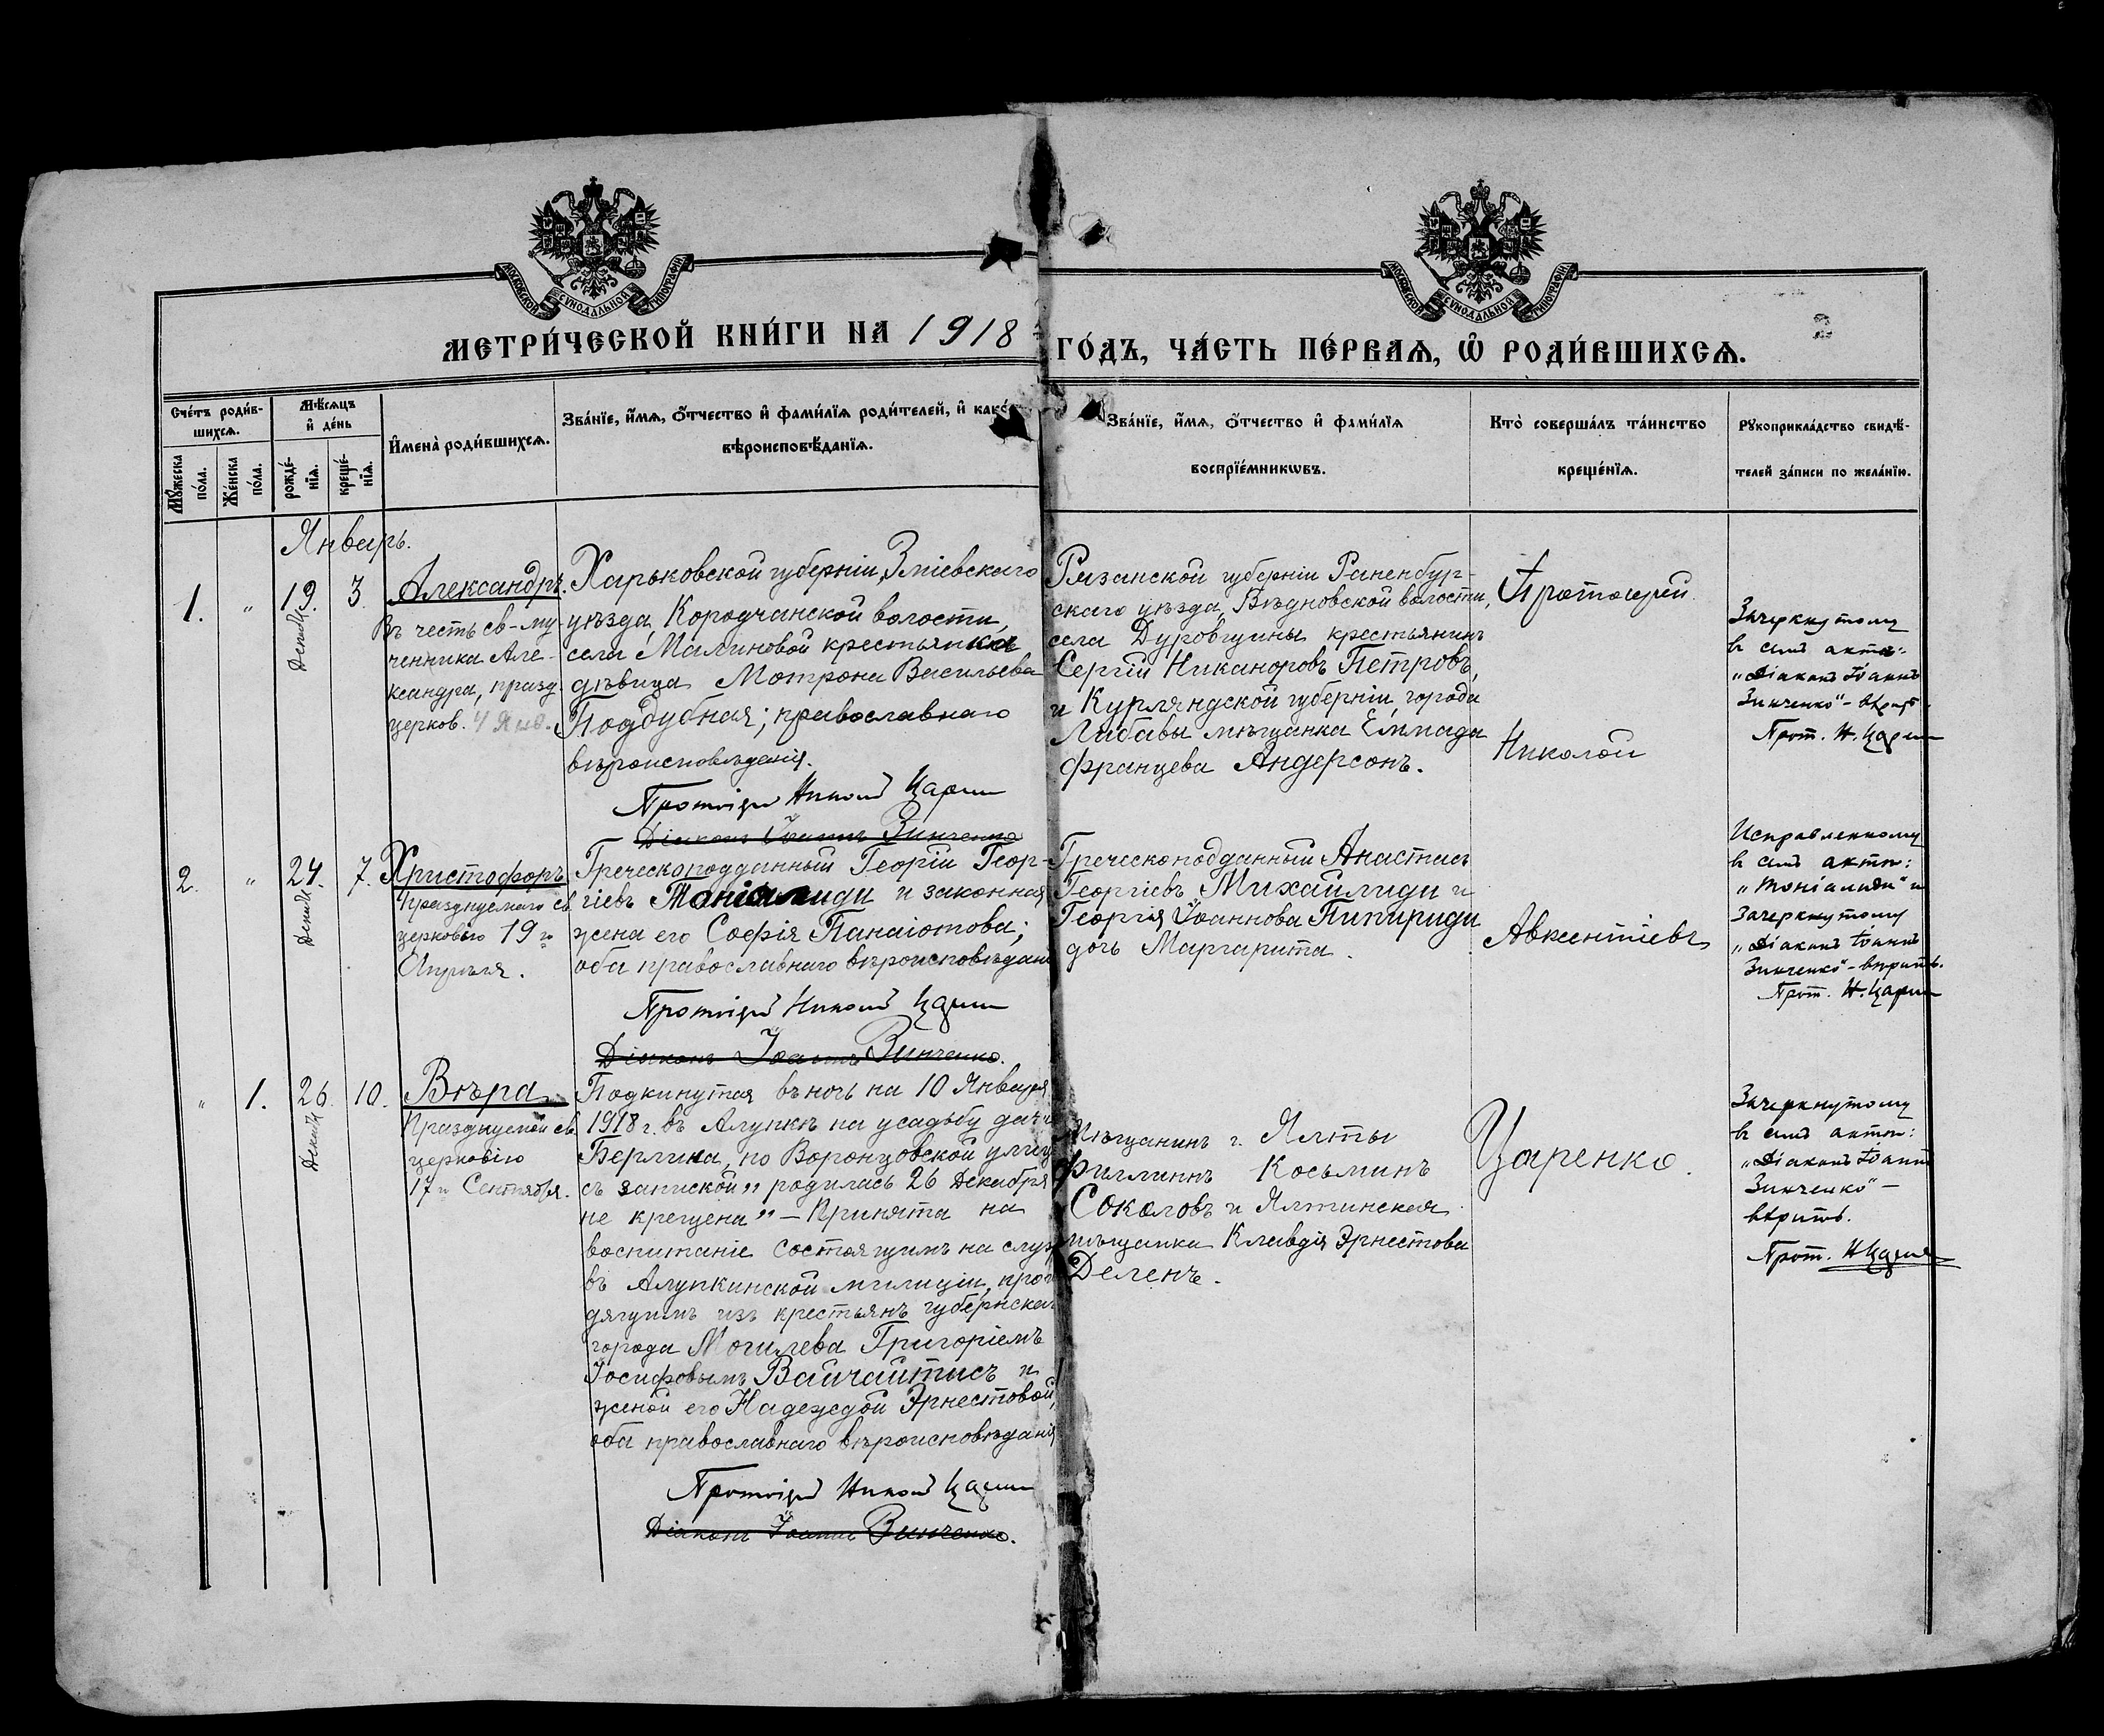 МОСКОВСКОЙ СѴНОДАЛЬНОЙ ТИПОГРАФІИ
МОСКОВСКОЙ СѴНОДАЛЬНОЙ ТИПОГРАФІИ
МЕТРИ́ЧЕСКОЙ КНИ́ГИ НА 1918
ГО́ДЪ, ЧА́СТЬ ПЕ́РВАѦ, Ѡ҆ РОДИ́ВШИХСѦ.
2
Сче́тъ роди́в-
шихсѧ.
Мꙋ́жеска
по́ла.
Же́нска
по́ла.
Мѣ́сѧцъ
и҆ де́нь
рожде́-
нїѧ.
креще́-
нїѧ.
И҆мена̀ роди́вшихсѧ.
Зва́нїе, и҆́мѧ, ѻ҆́тчество и҆ фами́лїѧ роди́телей, и҆ како́
вѣроисповѣ́данїѧ.
Зва́нїе, и҆́мѧ, ѻ҆́тчество и҆ фами́лїѧ
воспрїе́мникѡвъ.
Кто̀ соверша́лъ та́инство
креще́нїѧ.
Рꙋкоприкла́дство свидѣ́-
телей за́писи по жела́нїю.
Январь.
1.
"
19.
Декабр.
3.
Александръ.
Въ честь св-му
ченника Але-
ксандра, празд.
церков. 4 Янв.
Харьковской губерніи, Зміевскаго
уѣзда, Короочанской волости,
села Малиновой крестьянка
дѣвица Мотрона Васильева
Поддубная; православнаго
вѣроисповѣданія.
Протоіерей Николай Царен
Діаконъ Іоаннъ Зинченко
Рязанской губерніи Раненбур-
скаго уѣзда, Вѣдновской волости,
села Дуровщины крестьянинъ
Сергій Никаноровъ Петровъ,
и Курляндской губерніи, города
Либавы мѣщанка Еммада
Францева Андерсонъ.
Протоіерей
Николай
Зачеркнутому
въ семъ актѣ:
"Діаконъ Іоаннъ
Зинченко" – вѣрить.
Прот. Н. Царен
2.
"
24.
Декабр.
7.
Христофоръ
Празднуемаго св.
церковію 19 го
Апрѣля.
Греческоподданный Георгій Геор-
гіевъ Тоніалиди и законная
жена его Софія Панаіотова;
оба православнаго вѣроисповѣдан
Протоіерей Николай Царен
Діаконъ Іоаннъ Зинченко.
Греческоподданный Анастасъ
Георгіевъ Михайлиди и
Георгія Іоаннова Пипириди
дочь Маргарита.
Авксентіевъ
Исправленному
въ семъ актѣ:
"Тоніалиди" и
Зачеркнутому
"Діаконъ Іоаннъ
Зинченко" – вѣрить.
Прот. Н. Царен
"
1.
26.
Декабр.
10.
Вѣра
Празднуемой св.
церковію
17 го Сентября.
Подкинутая въ ночь на 10 Января
1918 г. въ Алупкѣ на усадьбу дачи
Берлина, по Воронцовской улиц
съ запиской „родилась 26 Декабря
не крещена" – Принята на
воспитаніе состоящимъ на служ
въ Алупкинской милиціи, прои
дящимъ изъ крестьянъ губернска
города Могилева Григоріемъ
Іосифовымъ Вайчайтисъ и
женой его Надеждой Эрнестовой,
оба православнаго вѣроисповѣданія
Протоіерей Николай Царен
Діаконъ Іоаннъ Зинченко.
Мѣщанинъ г. Ялты
Филлипъ Косьминъ
Соколовъ и Ялтинская
мѣщанка Клавдія Эрнестова
Деленъ.
Царенко.
Зачеркнутому
въ семъ актѣ:
"Діаконъ Іоаннъ
Зинченко" –
вѣрить.
Прот. Н Царен